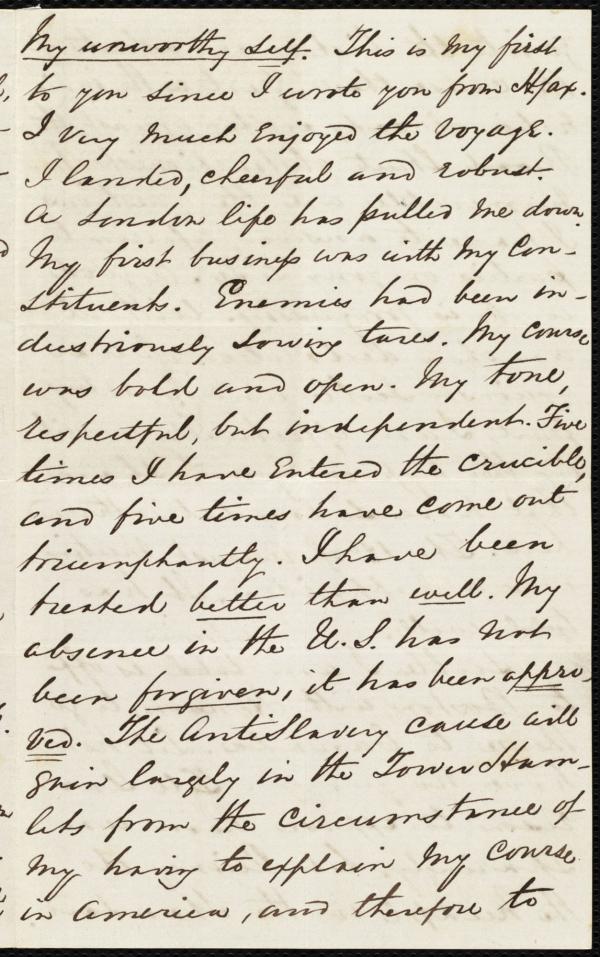 My unworthy self. This is my first
to you since I wrote you from Hfax.
I very much enjoyed the voyage.
I landed, cheerful and robust.
A London life has pulled me down.
My first business was with my Con-
stituents. Enemies had been in-
dustriously sowing tares. My course
was bold and open. My tone,
respectful, but independent. Five
times I have entered the crucible,
and five times have come out
triumphantly. I have been
treated better than well. My
absence in the U.S. has not
been forgiven, it has been appro-
ved. The AntiSlavery cause will
gain largely in the Tower Ham-
lets from the circumstance of
my having to explain my course
in America, and therefore to